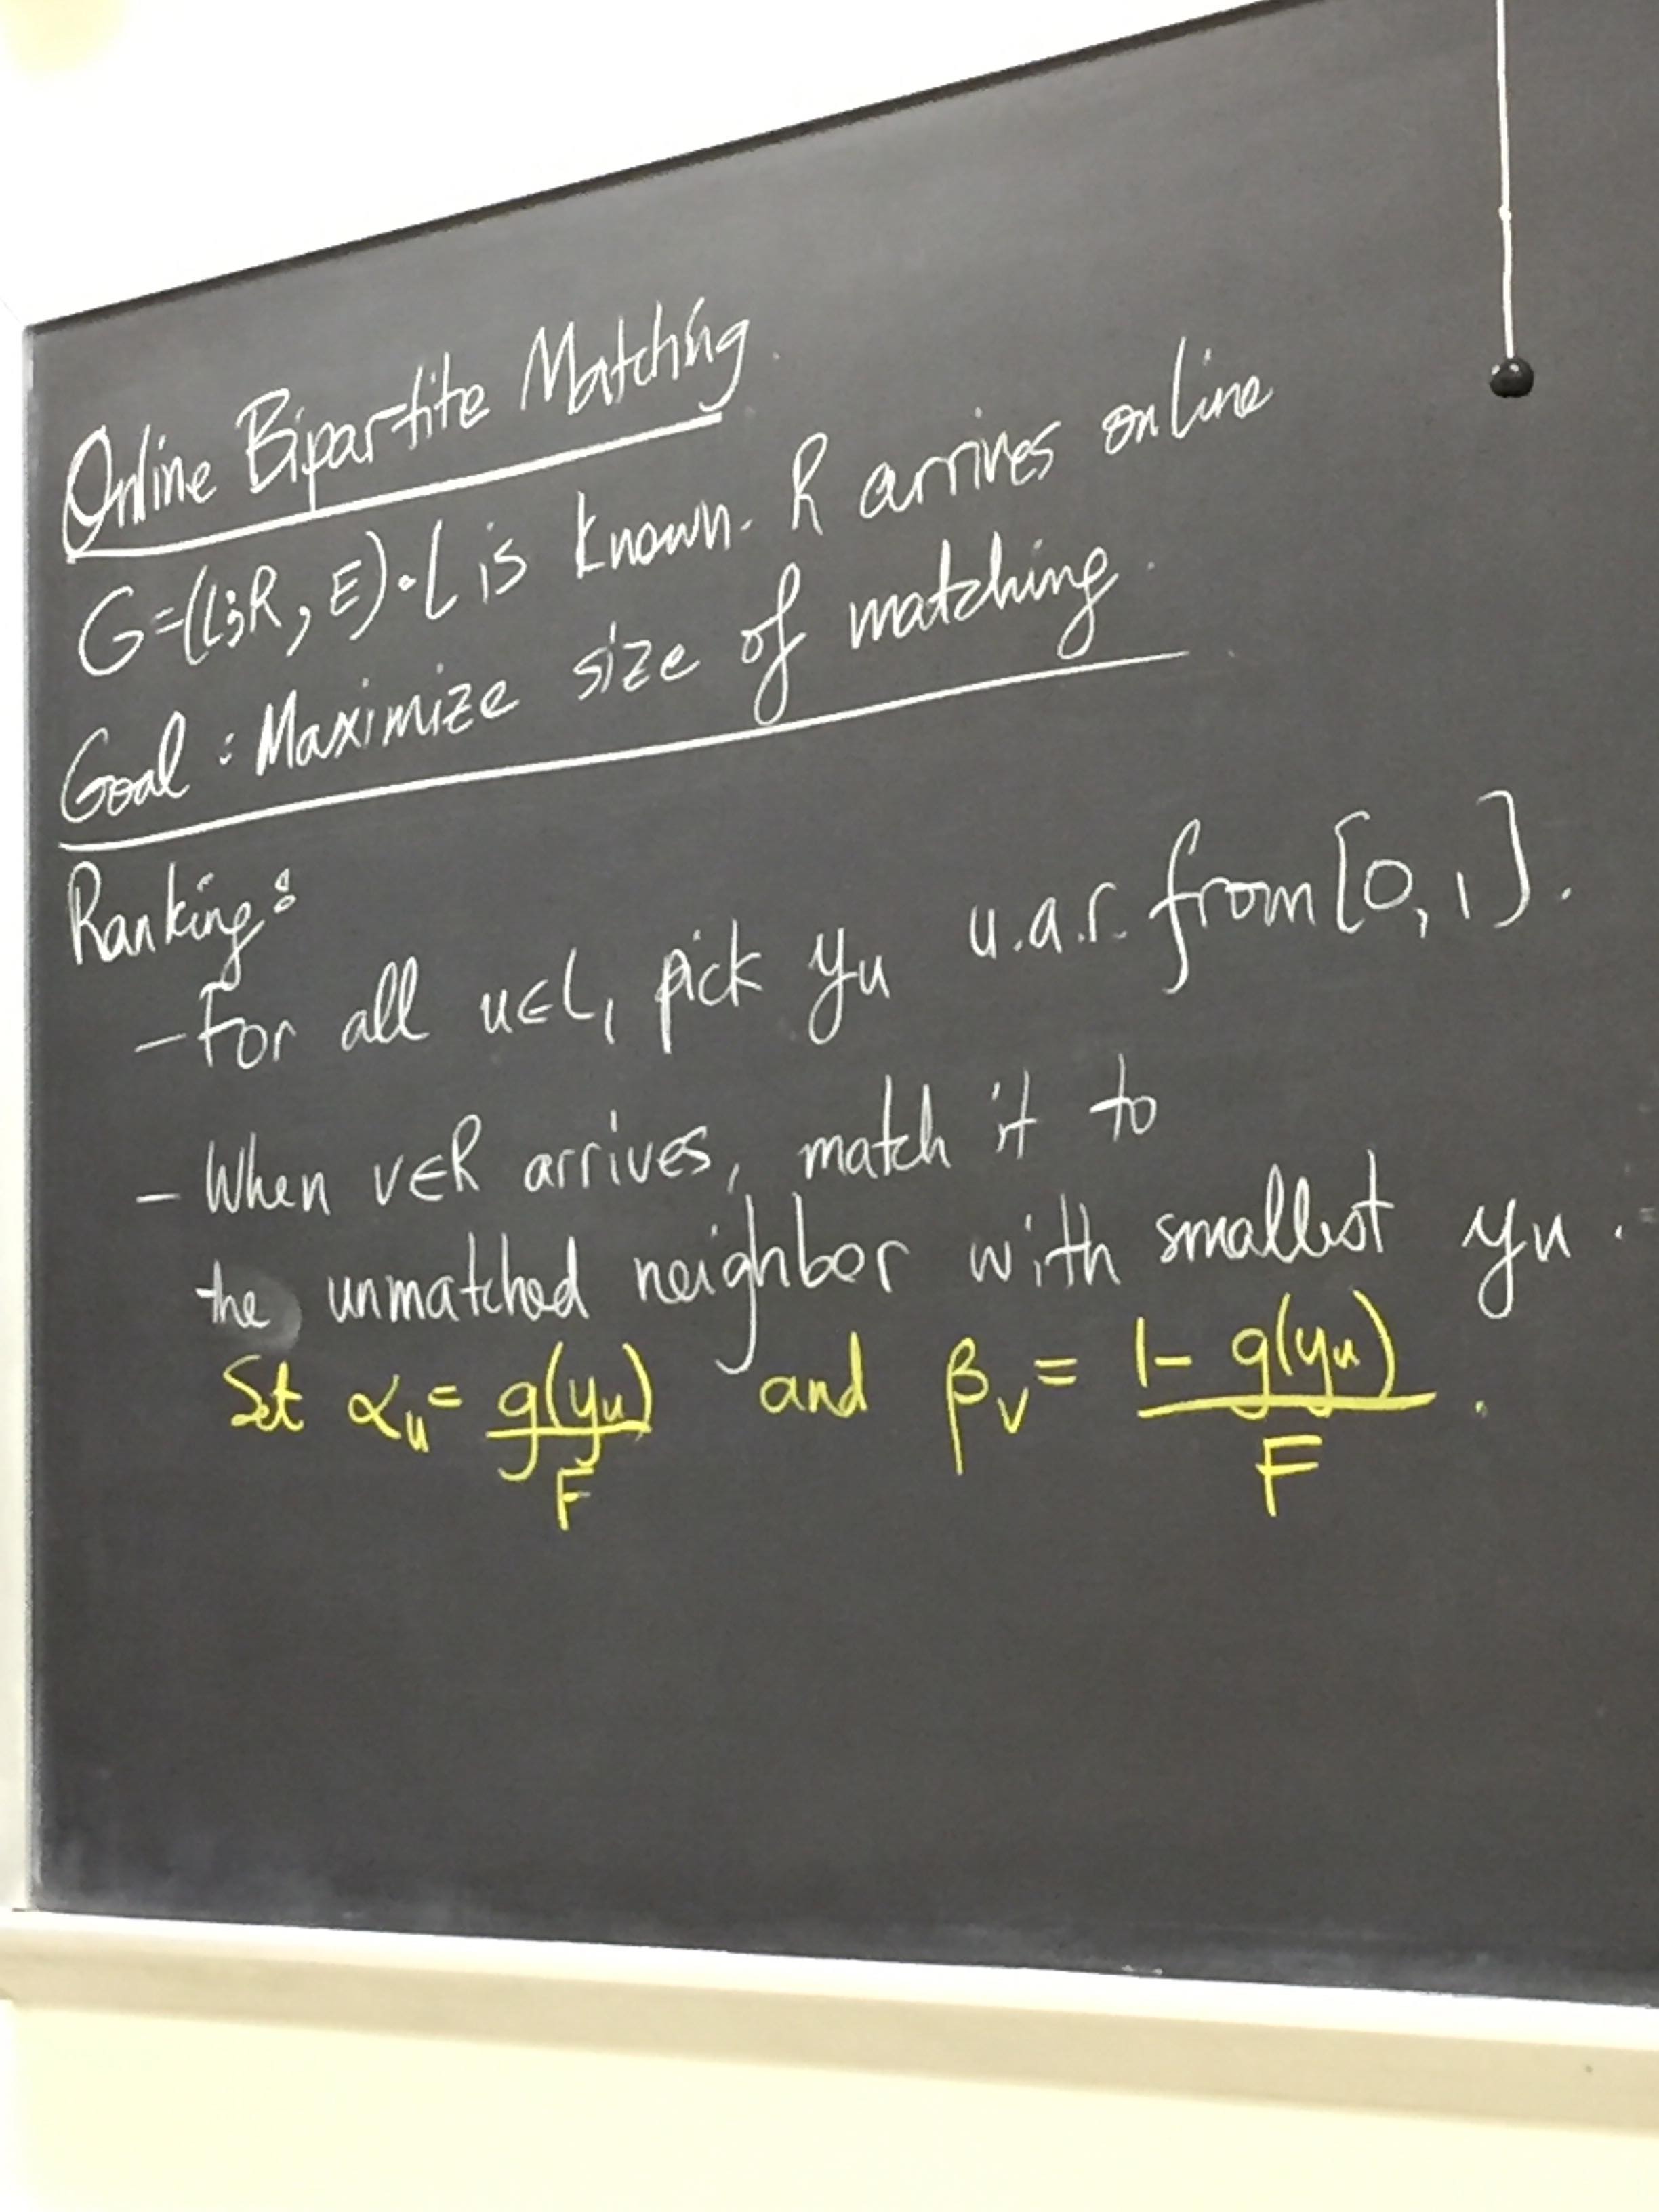 Online Bipartite Matching.
G=(L;R, E). L is known. R arrives online
Goal: Maximize size of matching.
Ranking:
- For all u∈L, pick yu u.a.r. from [0,1].
- When v∈R arrives, match it to
the unmatched neighbor with smallest yu.
Set αu = g(yu)/F and βv = 1-g(yu)/F.